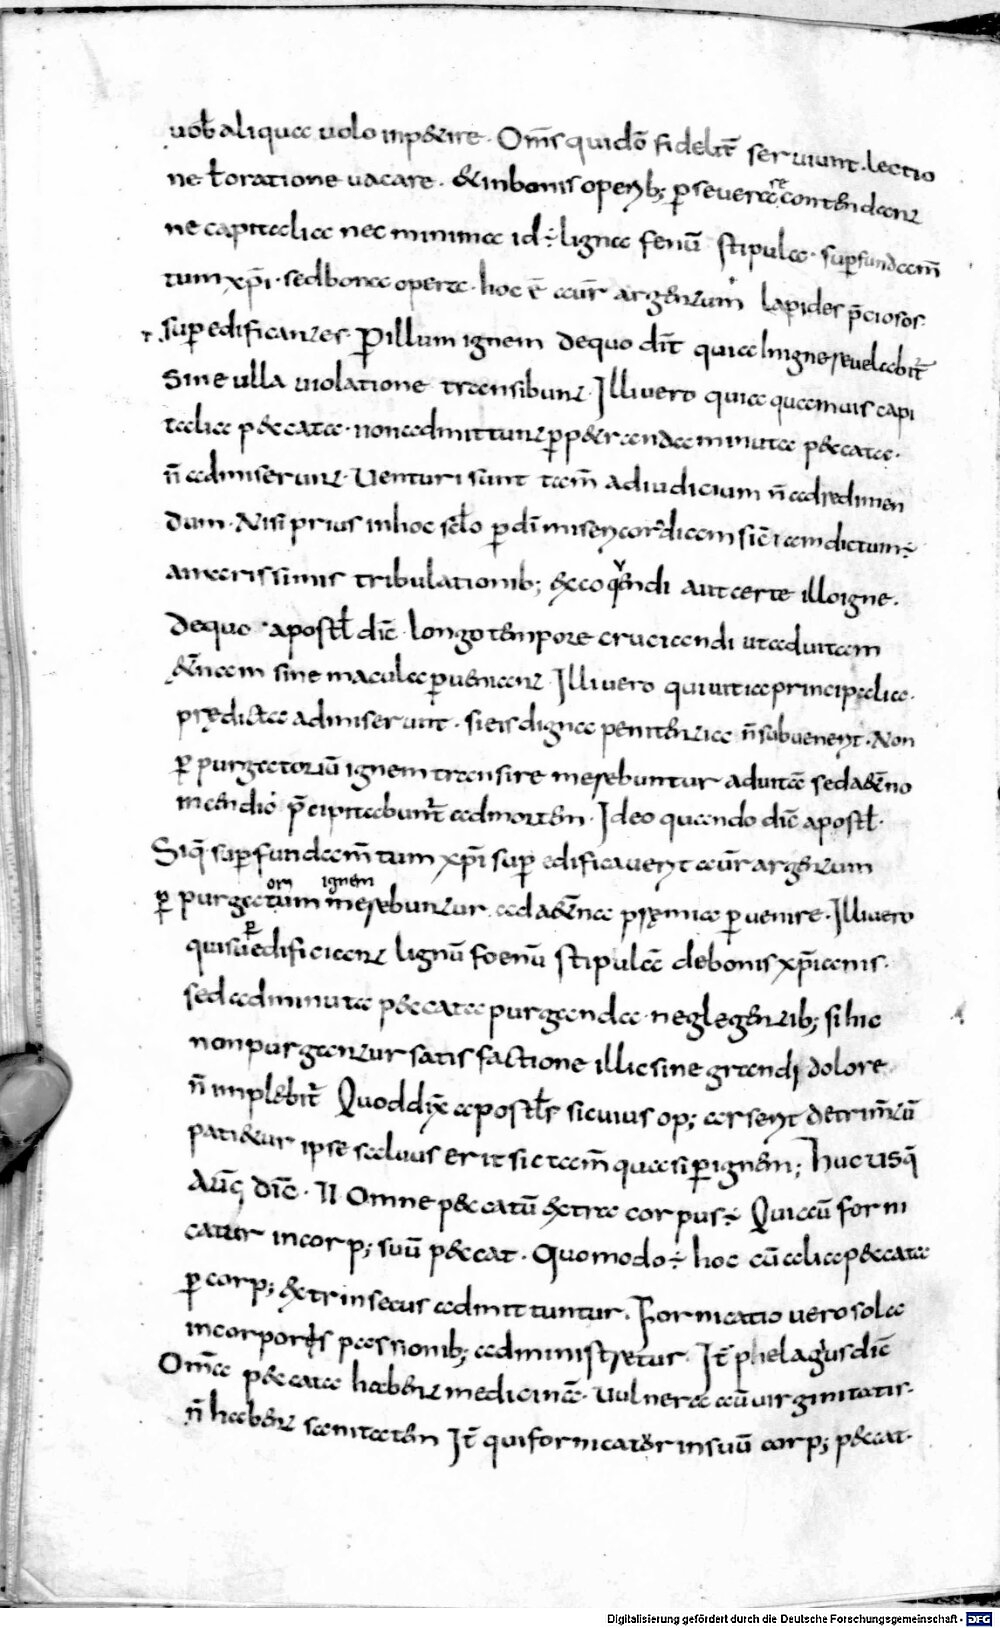 uob aliqua uolo inp&rire. Om̄s quidō fideliť seruiunt. lectio
ne ł oratione uacare. & inbonis operib; p̱seuerare contendant
ne capitalia nec minima id ÷ ligna fenū stipula. sup̱ fundam̄
tum xp̄i. sed bona opera. hoc ē aur̄ argentum lapides p̄ciosos
sup̱ edificantes. P̱ illum ignem dequo dix̄ quia Inigne reuelabit̄
Sine ulla uiolatione transibunt. Illi uero quia quamuis capi
talia peccata. non admittunt p̱p&randa minuta peccata.
n̄ admiserunt. Uenturi sunt tam̄ adiudicium n̄ adredimen
dum. Nisi prius inhoc sclo p̱ dī misericordiam sic iam dictum ÷
amarissimis tribulationib; excoquendi aut certe illo igne.
Dequo apostł dic̄ longo tempore cruciandi ut aduitam
&nam sine macula p̱ueniant. Illi uero qui uitia principalia.
prędicta admiserunt. si eis digna penitentia n̄ subuenerit. Non
p̱ purgatoriū ignem transire merebuntur aduitā sed a&no
incendio p̄cipitabunt̄ admortem. Ideo quando dic̄ apostł.
Siq̄ sup̱ fundam̄tum xp̄i sup̱ edificauerit aur̄ argentum
p̱ purgatorium ignem merebuntur ad a&na pręmia p̱uenire. Illi uero
qui sup̱ edificiant lignū foenū stipulā de bonis xp̄ianis.
sed ad minuta peccata purganda neglegentib; si hic
non purgantur satisfactione illic sine grandi dolore
n̄ implebit̄ Quod dix̄ apostłs si cuius op; arserit detrim̄tū
pati&ur ipse saluus erit sic tam̄ quasi p̱ ignem; huc usq̄
Auḡ dic̄. II Omne peccatū extra corpus ÷ Qui aū forni
catur incorp; suū peccat. Quomodo ÷ hoc cū alia peccata
p̱ corp; extrinsecus admittuntur. Fornicatio uero sola
incorporis passionib; administretur. It̄ phelagius dic̄
Om̄a peccata habent medicinā. Uulnera aū uirginitatis.
n̄ habent sanitatem It̄ qui fornicatur in suū corp; peccat.
Digitalisierung gefördert durch die Deutsche Forschungsgemeinschaft - DFG